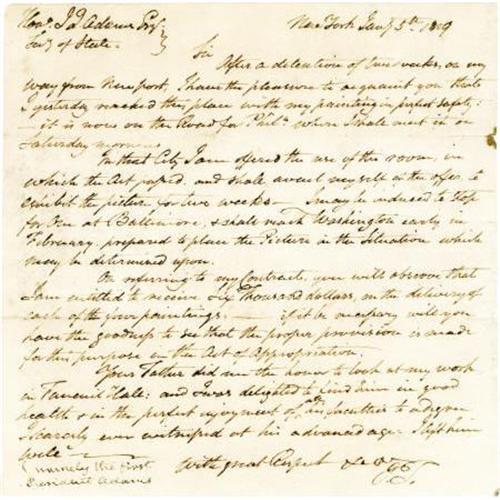 Honl. J Q Adams Esqr
Secy of State.
New York Jany 5th 1819
Sir
After a detention of two weeks, on my
way from Newport, I have the pleasure to acquaint you that
I yesterday reached this place with my painting in perfect safety;
— it is now on the Road for Phila. where I shall meet it on
Saturday morning.
In that City I am offered the use of the room, in
which the Act passed, and shall avail myself of the offer, to
exhibit the picture for two weeks — I may be induced to stop
for One at Baltimore, & shall reach Washington early in
February, prepared to place the Picture in the Situation which
may be determined upon.
On referring to my Contract, you will observe that
I am entitled to receive Six Thousand dollars, on the delivery of
each of the four paintings; — if it be necessary will you
have the goodness to see that the proper provision is made
for this purpose in the Act of Appropriation.
Your Father did me the honor to look at my work
in Faneuil Hall: and I was delighted to find him in good
health & in the perfect enjoyment of his faculties to a degree
scarcely ever witnessed at his advanced age. I left him
well —
(namely the first
President Adams)
With great Respect &c